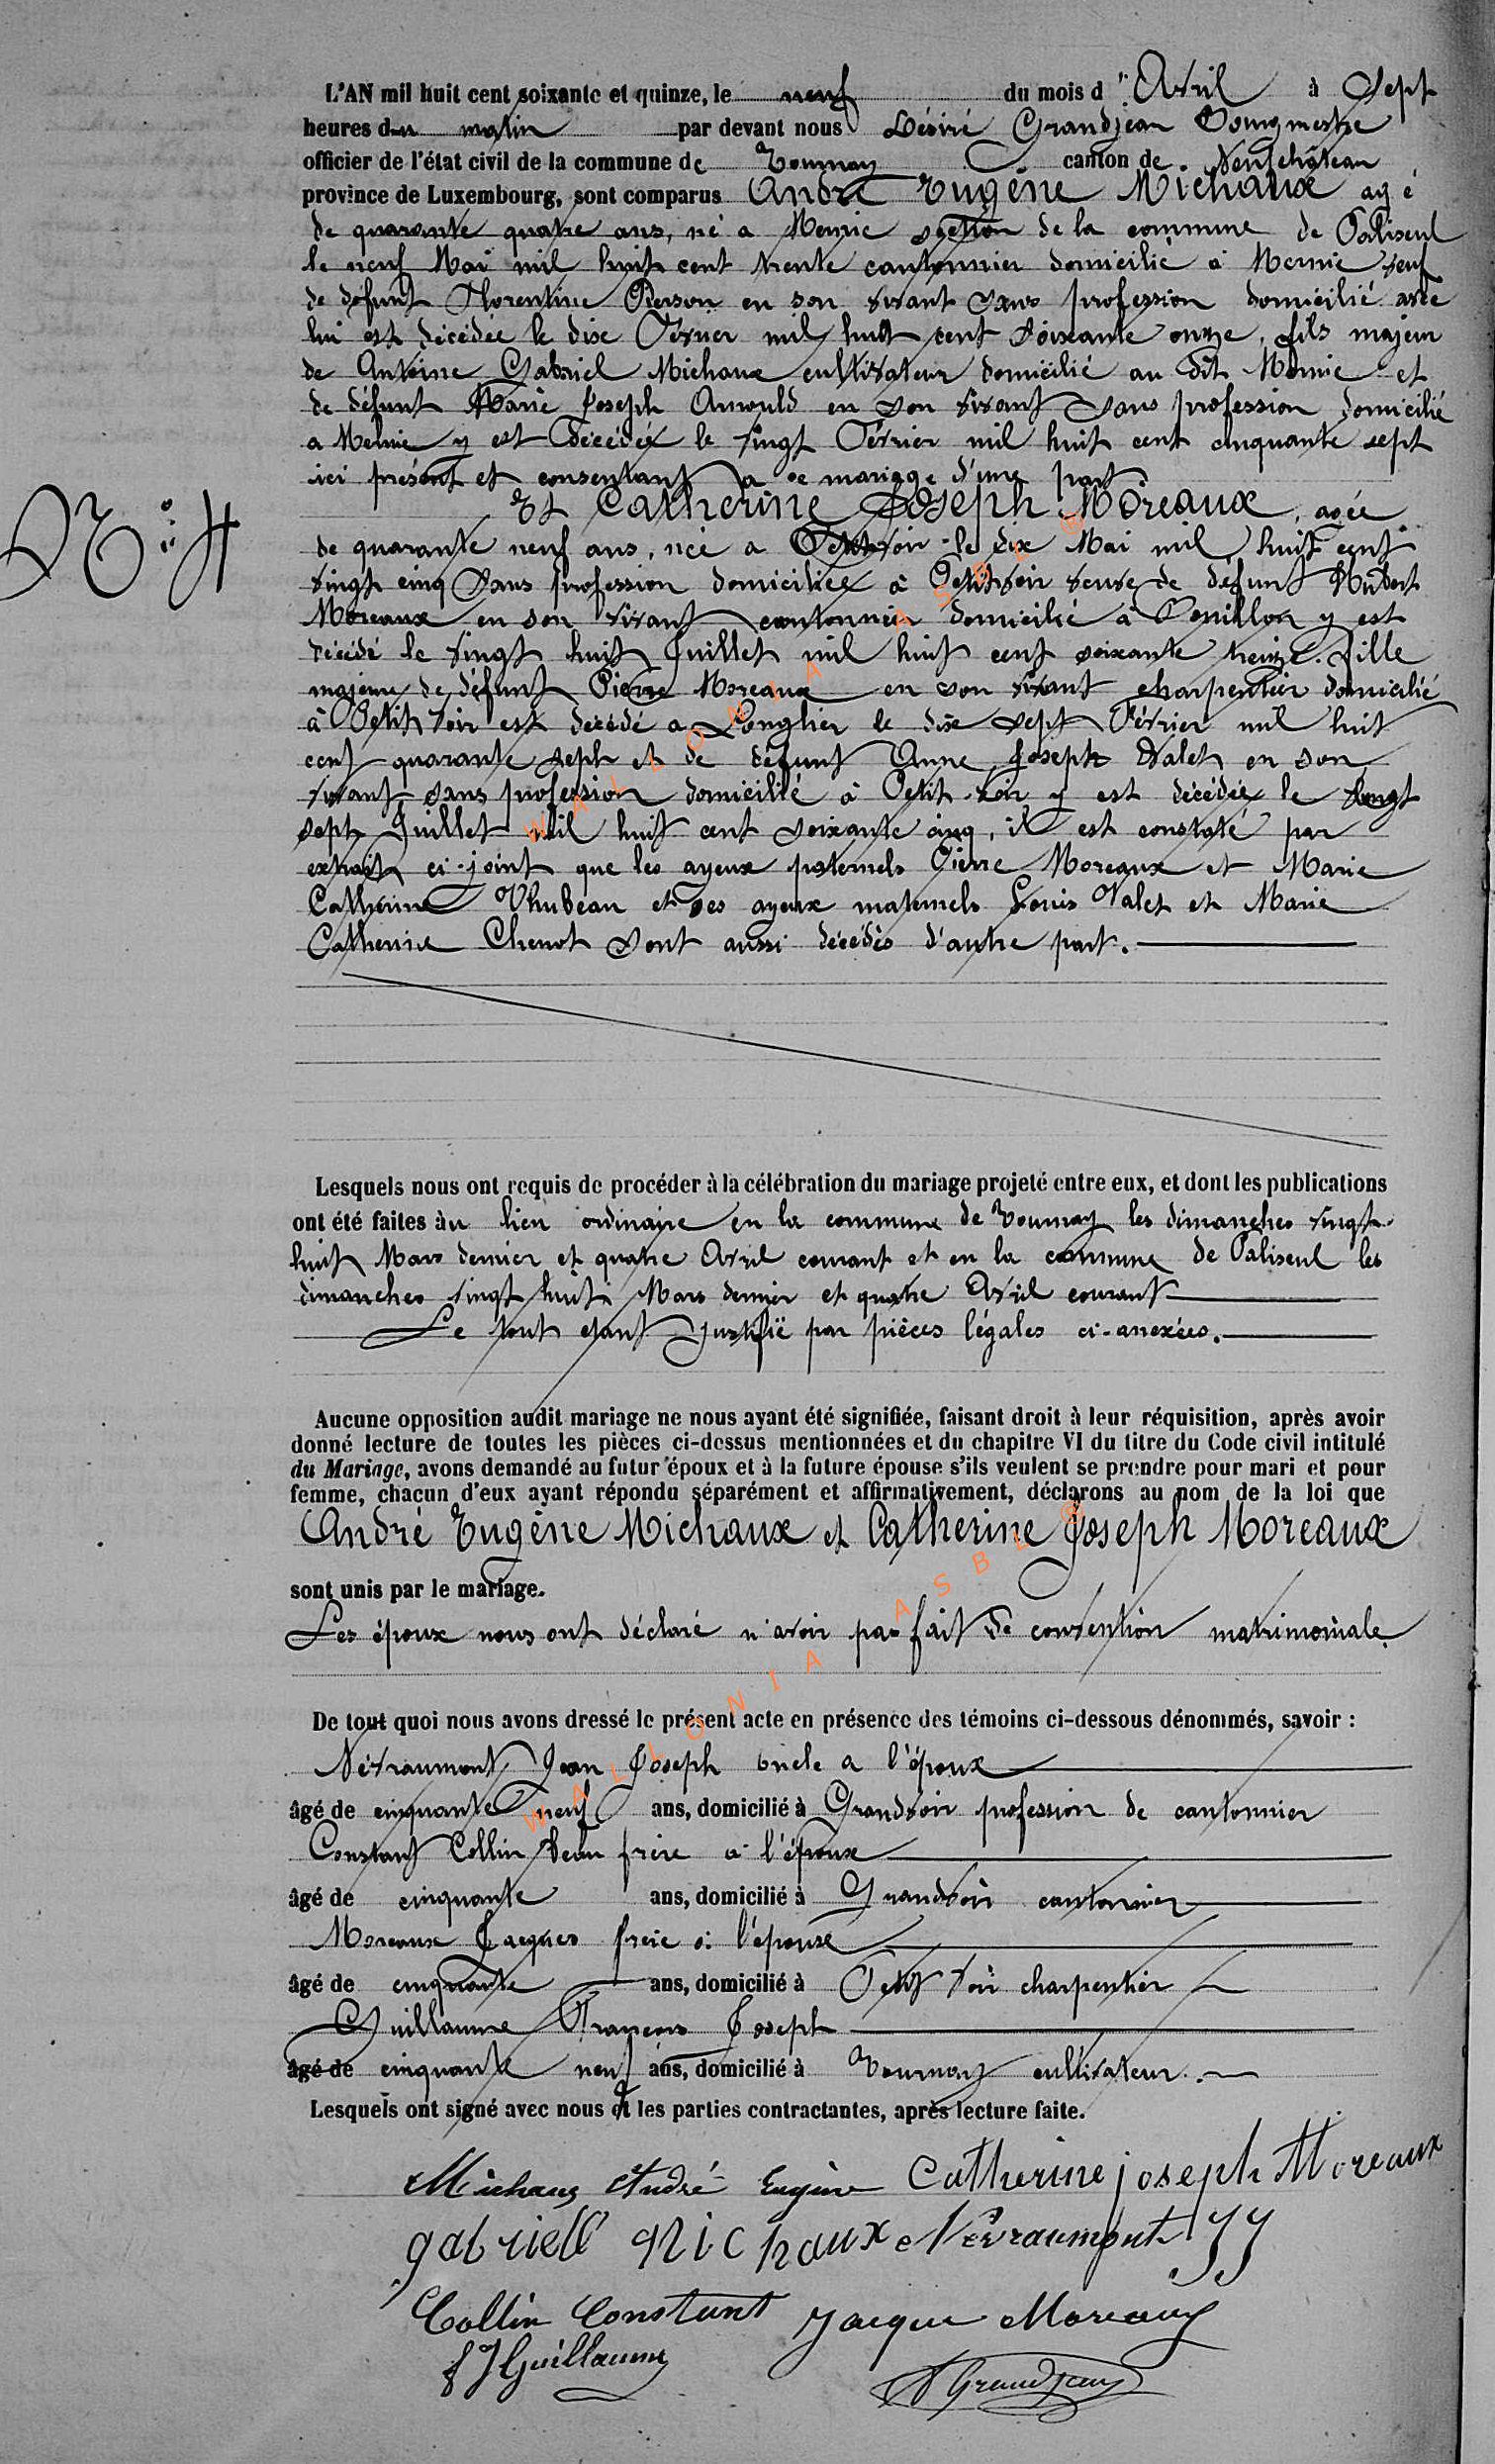 L'AN mil huit cent soixante et quinze, le neuf du mois d'Avril à Sept
heures du matin par devant nous Désiré Grandjean Bourgmestre
officier de l'état civil de la commune de Tournay canton de Neufchâteau
province de Luxembourg, sont comparus André Eugène Michaux agé
de quarante quatre ans, né a Merny section de la commune de Paliseul
le neuf Mai mil huit cent trente cantonnier domicilié à veuf
de défunt Florentine Pierson en son vivant sans profession domicilié avec
lui est décédée le dix Février mil huit cent soixante onze, fils majeur
de Antoine Gabriel Michaux cultivateur domicilié au dit et
de défunt Marie Joseph Arnould en son vivant sans profession domicilié
a y est décédée le vingt Février mil huit cent cinquante sept
ici présent et consentant a ce mariage d'une part
Nº 4
Et Catherine Joseph Moreaux, agée
de quarante neuf ans, née a Petitvoir le dix Mai mil huit cent
vingt cinq sans profession domiciliée à Petitvoir veuve de défunt Hubert
Moreaux en son vivant cantonnier domicilié à Bouillon y est
décédé le vingt huit Juillet mil huit cent soixante treize. fille
majeure de défunt Pierre Moreaux en son vivant charpentier domicilié
à Petit voir est décédé a Longlier le dix sept Février mil huit
cent quarante sept et de défunt Anne Joseph Valet en son
vivant sans profession domicilié à Petit-voir y est décédée le vingt
sept Juillet mil huit cent soixante cinq, il est constaté par
extrait ci-joint que les ayeux paternels Pierre Moreaux et Marie
Catherine et ses ayeux maternels Louis Valet et Marie
Catherine Chenot sont aussi décédés d'autre part.
Lesquels nous ont requis de procéder à la célébration du mariage projeté entre eux, et dont les publications
ont été faites au lieu ordinaire en la commune de Tournay les dimanches vingt
huit Mars dernier et quatre Avril courant et en la commune de Paliseul les
dimanches vingt huit Mars dernier et quatre Avril courant
Le tout etant justifié par pièces légales ci-anexées.
Aucune opposition audit mariage ne nous ayant été signifiée, faisant droit à leur réquisition, après avoir
donné lecture de toutes les pièces ci-dessus mentionnées et du chapitre VI du titre du Code civil intitulé
du Mariage, avons demandé au futur époux et à la future épouse s'ils veulent se prendre pour mari et pour
femme, chacun d'eux ayant répondu séparément et affirmativement, déclarons au nom de la loi que
André Eugène Michaux et Catherine Joseph Moreaux
sont unis par le mariage.
Les époux nous ont déclaré n'avoir pas fait de convention matrimoniale.
De tout quoi nous avons dressé le présent acte en présence des témoins ci-dessous dénommés, savoir :
Névraumont Jean Joseph oncle a l'époux
âgé de cinquante neuf ans, domicilié à Grandvoir profession de cantonnier
Constant Collin beau frère a l'épouse
âgé de cinquante ans, domicilié à Grandvoir cantonnier
Moreaux Jacques frere a l'épouse
âgé de cinquante ans, domicilié à Petit voir charpentier
Guillaume François Joseph
âgé de cinquante neuf ans, domicilié à Tournay cultivateur.
Lesquels ont signé avec nous et les parties contractantes, après lecture faite.
Michaux André Eugène Catherine joseph Moreaux
gabriell Michaux Névraumont JJ
Collin Constant Jacque Moreaux
f J Guillaume
D Grandjean
WALLONIA ASBL ®
WALLONIA ASBL ®